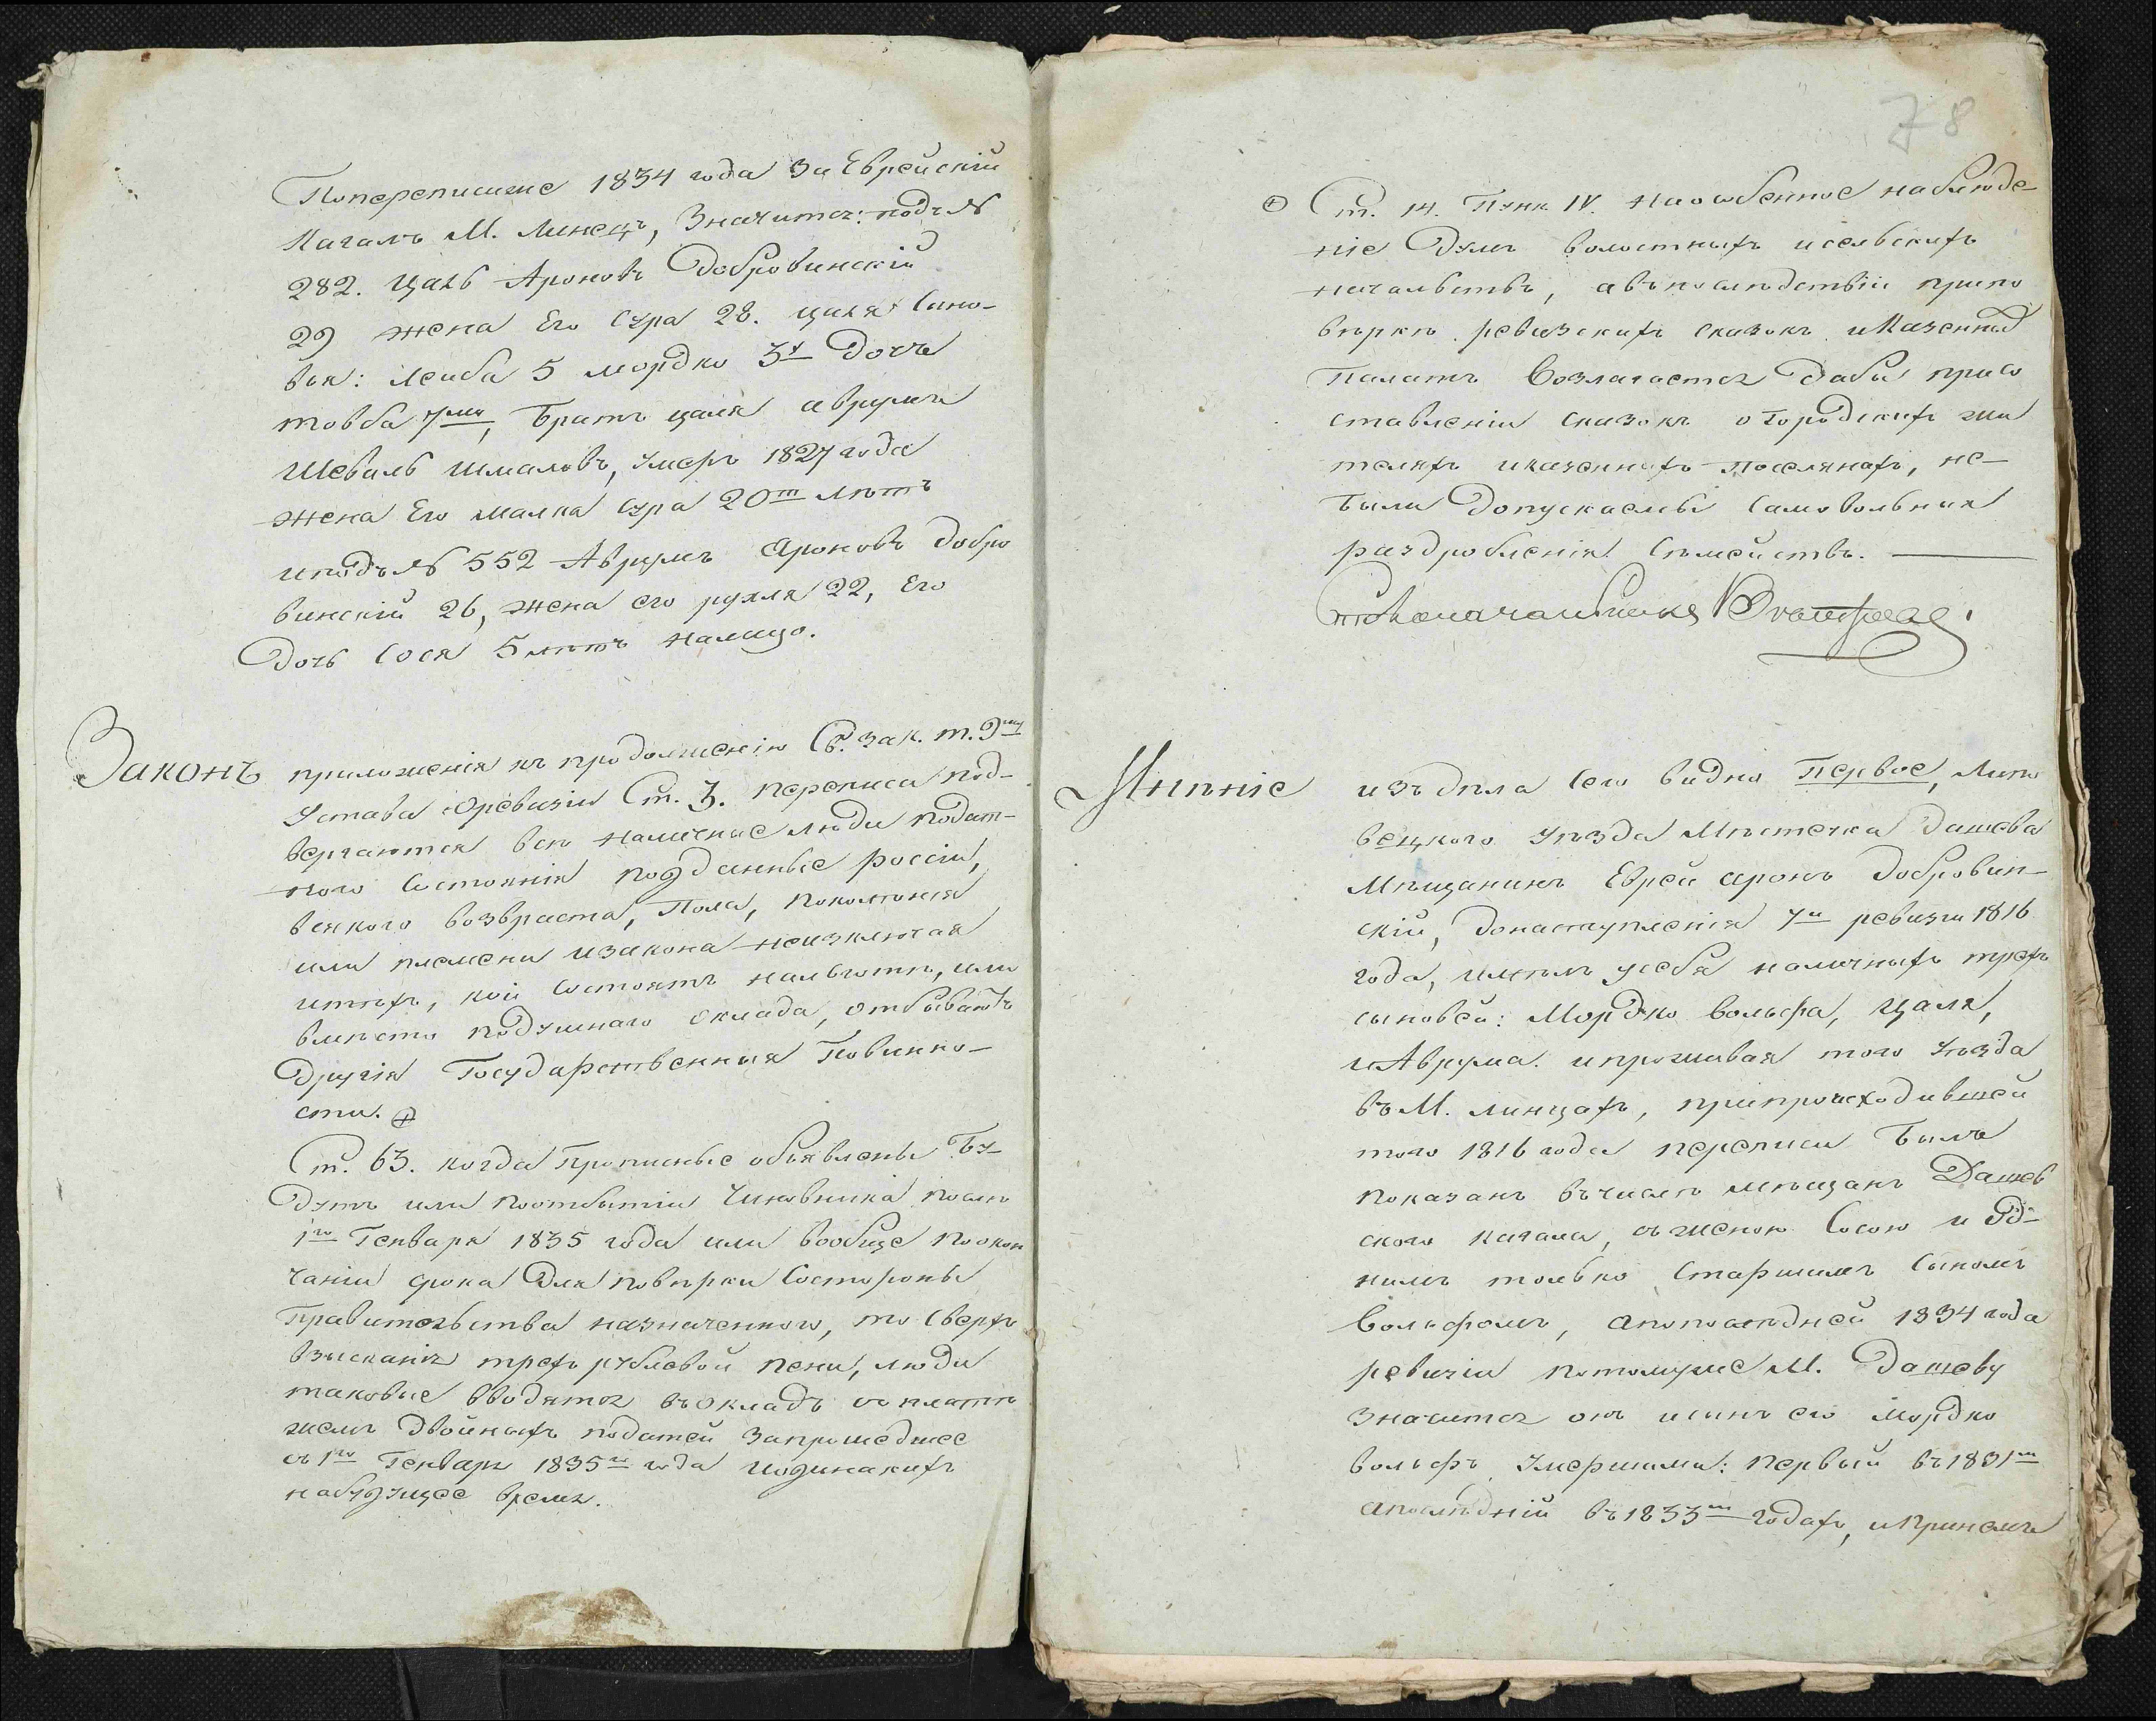 Попереписиже 1834 года За Еврейскій
Кагалъ М. Линецъ, Значится: подъ №
282. Цаль Ароновъ Добровинскій
29 жена Его Сура 28. Цаля Сыно-
вья: Лейба 5 мордко 3 Дочь
товба 7, Братъ цаля аврумъ
Шеваль Шмаловъ, Умеръ 1827 года
жена Его малка сура 20т Лѣтъ
иподъ № 552 Аврумъ Ароновъ Добро
винскій 26, жена его рухля 22, Его
Дочь Сося 5 лѣтъ налицо.
Законъ приложенія къ продолженію Св. зак. т. 9му
Устава Оревизіи Ст. 3. переписи под-
вергаются всѣ наличные люди подат-
ного Состоянія подданные россіи,
всякого возвраста, Пола, поколѣнія
или племени изакона неизключая
итѣхъ, кои Состоятъ нальготѣ, или
вмѣсто подушнаго Оклада, отбываютъ
Другія Государственныя Повинно-
сти.
Ст. 63. когда прописные объявлены Бу-
Дутъ или поотбытіи Чиновника послѣ
1го Генваря 1835 года или вообще поокон
чаніи срока Для повѣрки Состороны
Правительства назначенного, то Сверхъ
взысканія трехъ рублевой пени, люди
таковые вводятся въокладъ съ платѣ
жемъ Двойныхъ податей Запрошедшее
съ 1го Генваря 1835го года иодинакихъ
набудущее время.
78
Ст. 14. Пунк. IV. Наособенное наблюде-
ніе Думъ волостныхъ исельскихъ
начальствъ, авъпослѣдствіи припо
вѣркѣ ревизскихъ сказокъ иКазенной
Палатѣ Возлагается Дабы присо
ставленіи сказокъ огородскихъ жи
теляхъ иказенныхъ поселянахъ, не-
были Допускаемы Самовольныя
раздробленія Сѣмействъ.
Мнѣніе изъ дѣла Сего видно Первое, Липо
вецкого Уѣзда Мѣстечка Дашева
Мѣщанинъ Еврей аронъ Добровин-
скій, донаступленія 7й ревизіи 1816
года, имѣлъ усебя наличныхъ трехъ
сыновей: Мордко вольфа, Цаля,
иАврума. ипроживая того Уѣзда
въ М. линцахъ, припроисходившей
того 1816 года переписи Былъ
показанъ въчислѣ мѣщанъ Дашев
ского кагала, съ женою Сосою и Од-
нимъ только Старшимъ Сыномъ
Вольфомъ, апопослѣдней 1834 года
ревизіи потомуже М. Дашеву
значится онъ исынъ его Мордко
вольфъ Умершими: первый въ 1831м
апослѣдній въ 1833м годахъ, ипринемъ